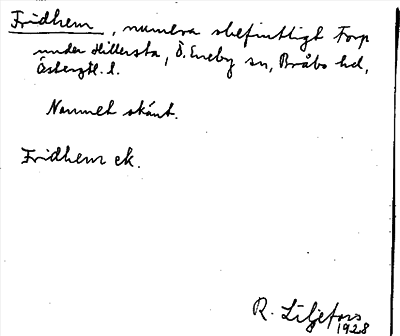 Fridhem, numera obefintligt torp
under Hillersta, Ö. Eneby sn, Bråbo hd,
Östergtl. l.
Namnet skänt.
Fridhem ek.
R. Liljefors
1928